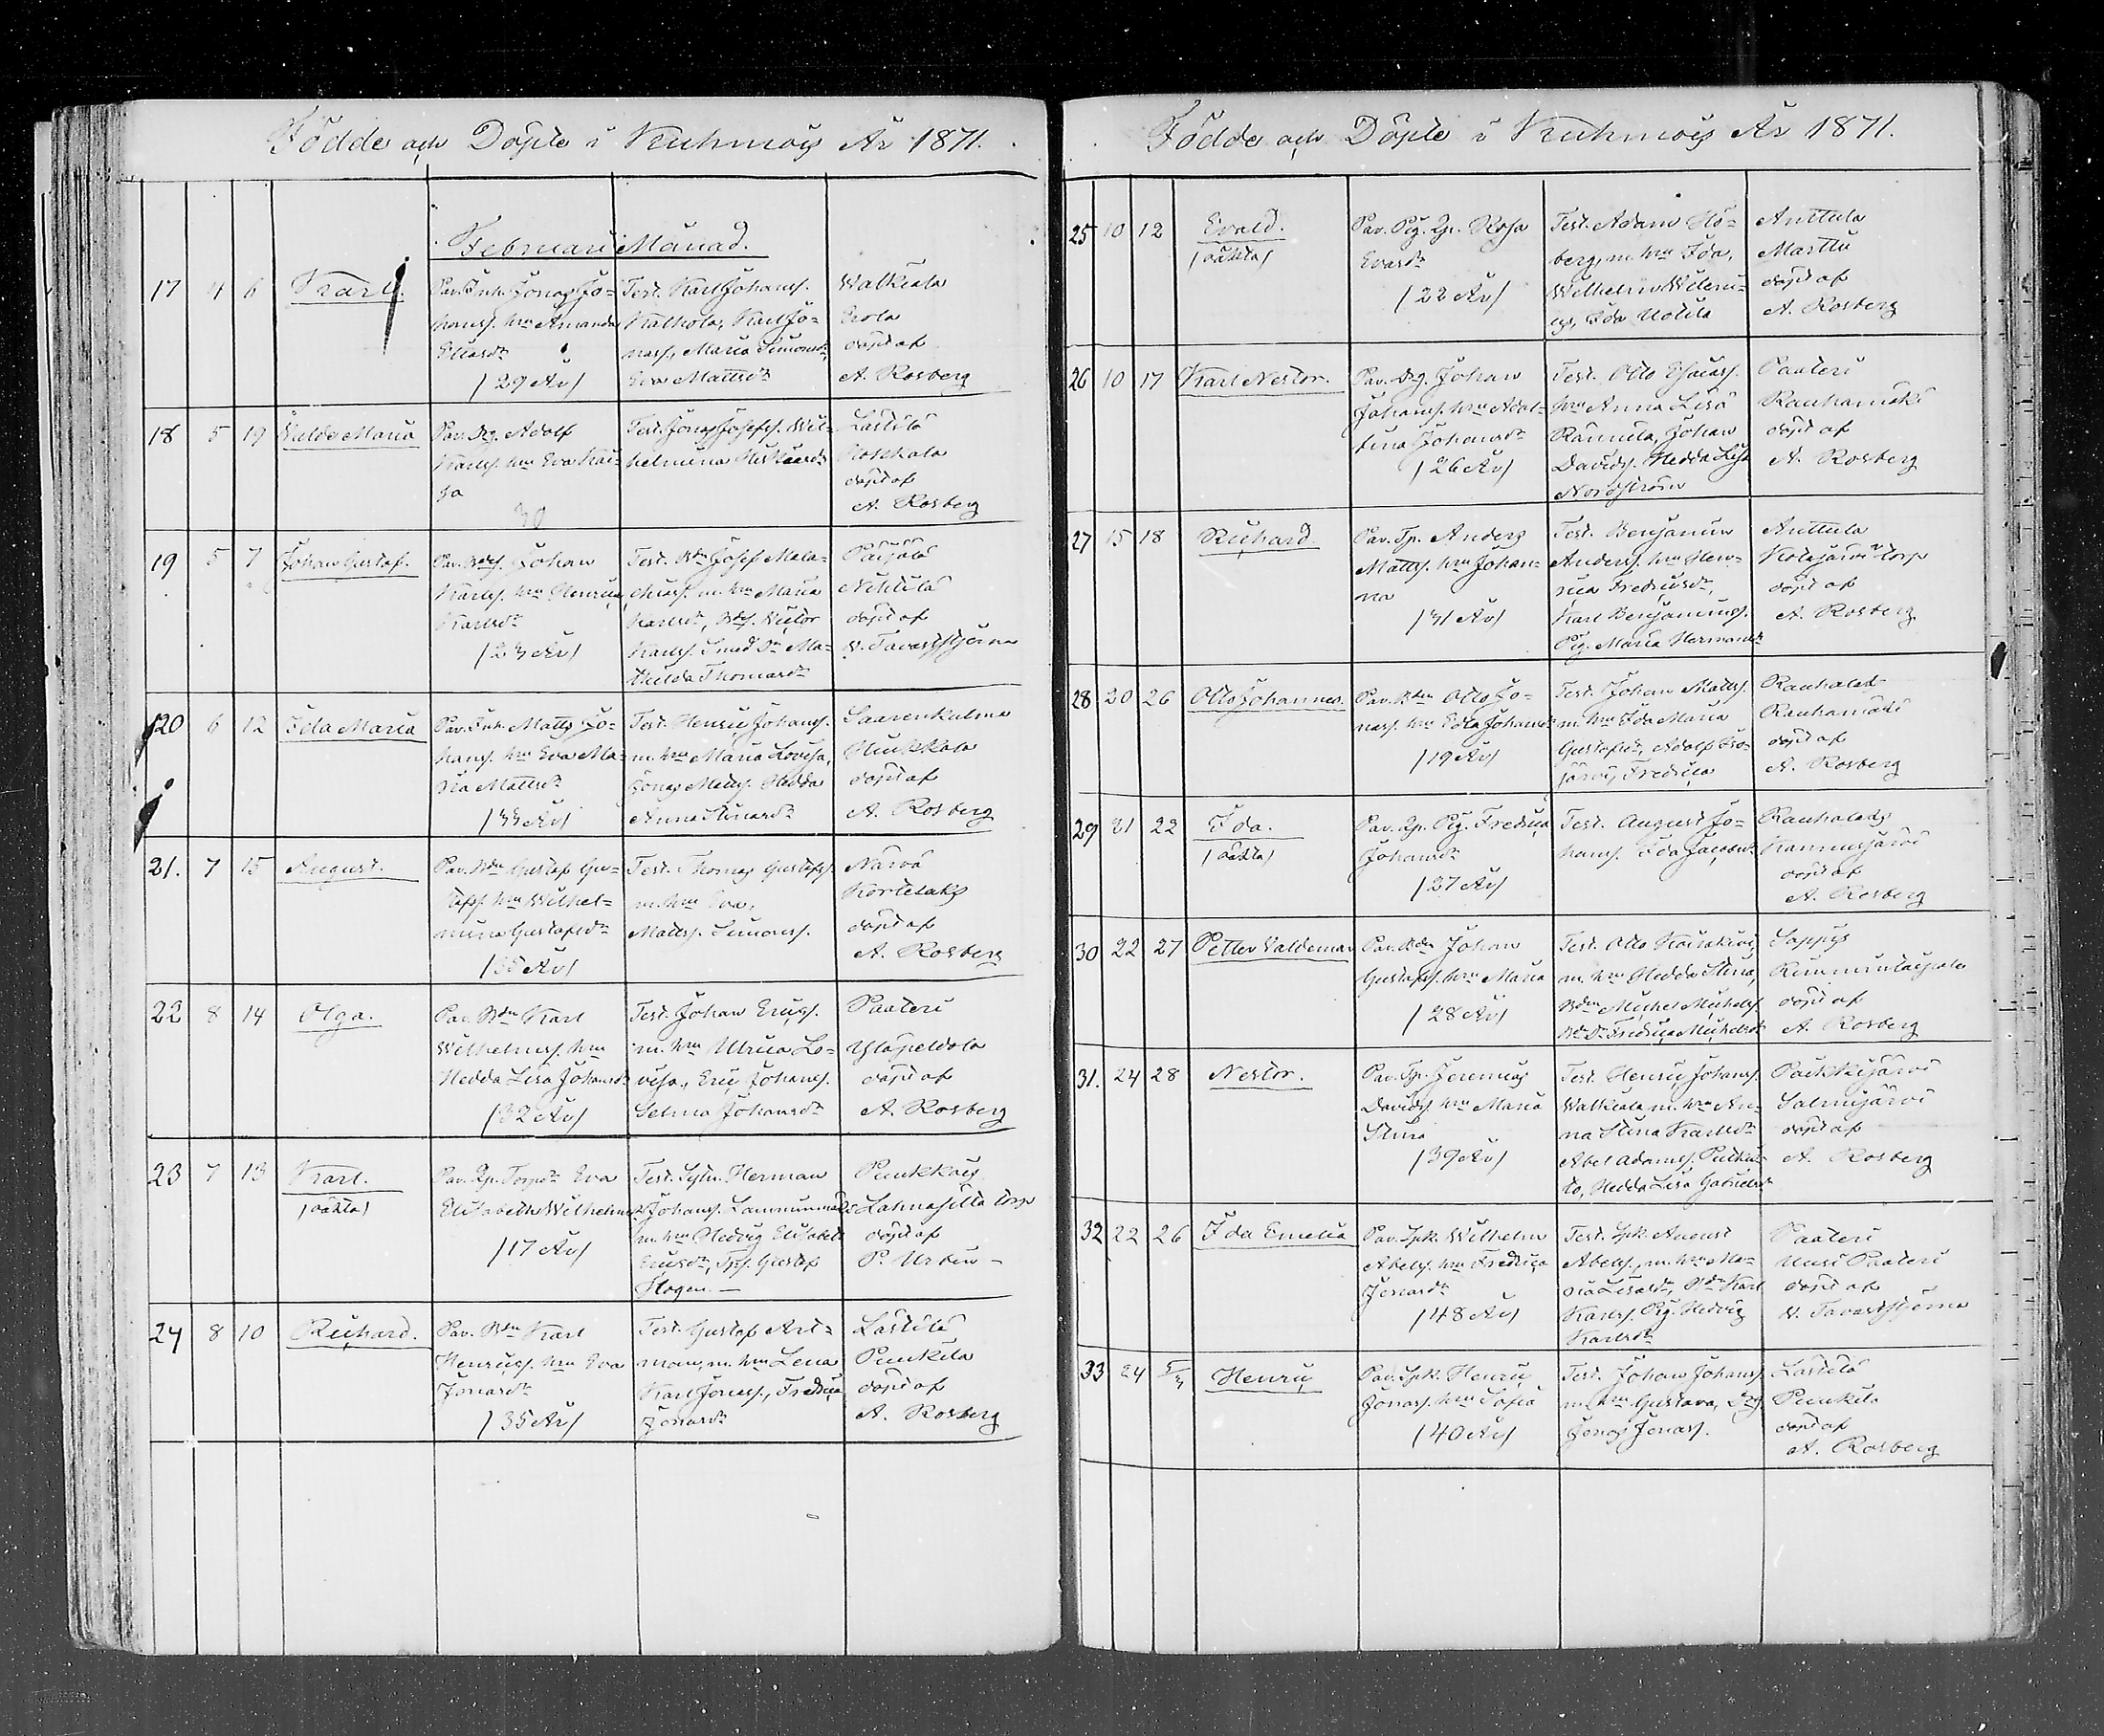 Födde och Döpte i Kuhmois År 1871.
Februari Månad.
17 4 6 Karl.
Par. Inh. Jonas Jo=
hans. hru Amanda
Eliasdr
/29 År/
Test. Karl Johans.
Kalhola, Karl Jo=
nass, Maria Simonsdr,
Eva Mattsdr
Walkeala
Eerola
döpt af
A. Rosberg
18 5 19 Valda Maria
Par. Drg. Adolf
Karls. hru Eva Kai=
sa
30
Test. Jonas Josefs. Wil=
helmina
Lästilä
döpt af
A. Rosberg
19 5 7 Johan Gustaf.
Par. Johan
Karls. hru Henrica
Karlsdr
/23 År/
Test. Bdn Josef Mala=
chias. m. hru Maria
Karlsdr, Victor
Karls. Ma=
thilda Thomasdr
Päijälä
Nikkilä
döpt af
W. Tavaststjerna
20 6 12 Ida Maria
Par. Inh. Matts Jo=
hans. hru Eva Ma=
ria Mattsdr
/33 År/
Test. Henric Johans.
m. hru Maria Lovisa,
Jonas Matts. Hedda
Anna
Saarenkulma
Hukkala
döpt af
A. Rosberg
21. 7 15 August.
Par. Bdn Gustaf Gu=
stafs. hru Wilhel=
mina Gustafsdr
/35 År/
Test. Thomas Gustafs.
m. hru Eva,
Matts. Simons.
Närvä
döpt af
A. Rosberg
22 8 14 Olga.
Par. Bdn Karl
Wilhelms. hru
Hedda Lisa Johansdr
/32 År/
Test. Johan Erics.
m. hru Ulrica Lo=
visa, Eric Johans.
Selma Johansdr
Paateri
Yläpeldola
döpt af
A. Rosberg
23 7 13 Karl.
/oäkta/
Par. Qp. Torpdr Eva
Elisabeth Wilhelmsdr
/17 År/
Test. Sytn. Herman
Johans. Lamminmäki
m. hru Hedvig Elisabeth
Ericsdr, Gustaf
Hogen. —
Puukkois
Lahnasilta torp
döpt af
P. Urbin —
24 8 10 Richard.
Par. Bdn Karl
Henrics. hru Eva
Jonasdr
/35 År/
Test. Gustaf Art=
man, m. hru Lena
Karl Jonass., Fredrica
Jonasdr
Lästilä
Punkila
döpt af
A. Rosberg
Födde och Döpte i Kuhmois År 1871.
25 10 12 Evald.
/oäkta/
Par. Pig. Qp. Rosa
Evasdr
/22 År/
Test. Adam Hö=
berg, m. hru Ida,
Wilhelm Wileni=
us, Ida Uotila
Anttula
Marttu
döpt af
A. Rosberg
26 10 17 Karl Nestor.
Par. Drg. Johan
Johans. hru Adol=
fina Johansdr
/26 År/
Test. Otto Esaiass.
hru Anna Lisa
Rannila, Johan
Davids. Hedda Lisa
Nordström
Paateri
Rauhamäki
döpt af
A. Rosberg
27 15 18 Richard.
Par. Tp. Anders
Matts. hru Johan=
na
/31 År/
Test. Benjamin
Anders. hru Hen=
rica Fredricsdr,
Karl Benjamins.
Pig. Maria Hermansdr
Anttula
torp
döpt af
A. Rosberg
28 20 26 Otto Johannes.
Par. Bdn Otto Jo=
nass. hru Edla Johansdr
/19 År/
Test. Johan Matts.
m. hru Ida Maria
Gustafsdr, Adolf Iso=
järvi, Fredrica
Rauhalaks
Rauhamäki
döpt af
A. Rosberg
29 21 22 Ida.
/oäkta/
Par. Qp. Pig. Fredrica
Johansdr
/27 År/
Test. August Jo=
hans. Ida Jacobsdr
Rauhalaks
Hannusjärvi
döpt af
A. Rosberg
30 22 27 Petter Valdemar
Par. Bdn Johan
Gustafs. hru Maria
/28 År/
Test. Otto
m. hru Hedda Stina,
Bdn Michel Michels.
Fredrica Michelsdr
Sappis
döpt af
A. Rosberg
31. 24 28 Nestor.
Par. Tp. Jeremias
Davids. hru Maria
Stina
/39 År/
Test. Henric Johans.
Walkeala m. hru An=
na Stina Karlsdr
Abel Adams.
Hedda Lisa Gabrielsdr
Poikkijärvi
Salmijärvi
döpt af
A. Rosberg
32 22 26 Ida Emelia
Par. Spk. Wilhelm
Abels. hru Fredrica
Jonasdr
/48 År/
Test. Spk. August
Abels., m. hru Ma=
ria Bdn Karl
Karls. Pig. Hedvig
Karlsdr
Paateri
Uusi Paateri
döpt af
W. Tavaststjerna
33 24 5/3 Henric
Par. Spk. Henric
Jonass. hru Sofia
/40 År/
Test. Johan Johans.
m. hru Gustava, Drg.
Jonas Jonass.
Lästilä
Punkila
döpt af
A. Rosberg